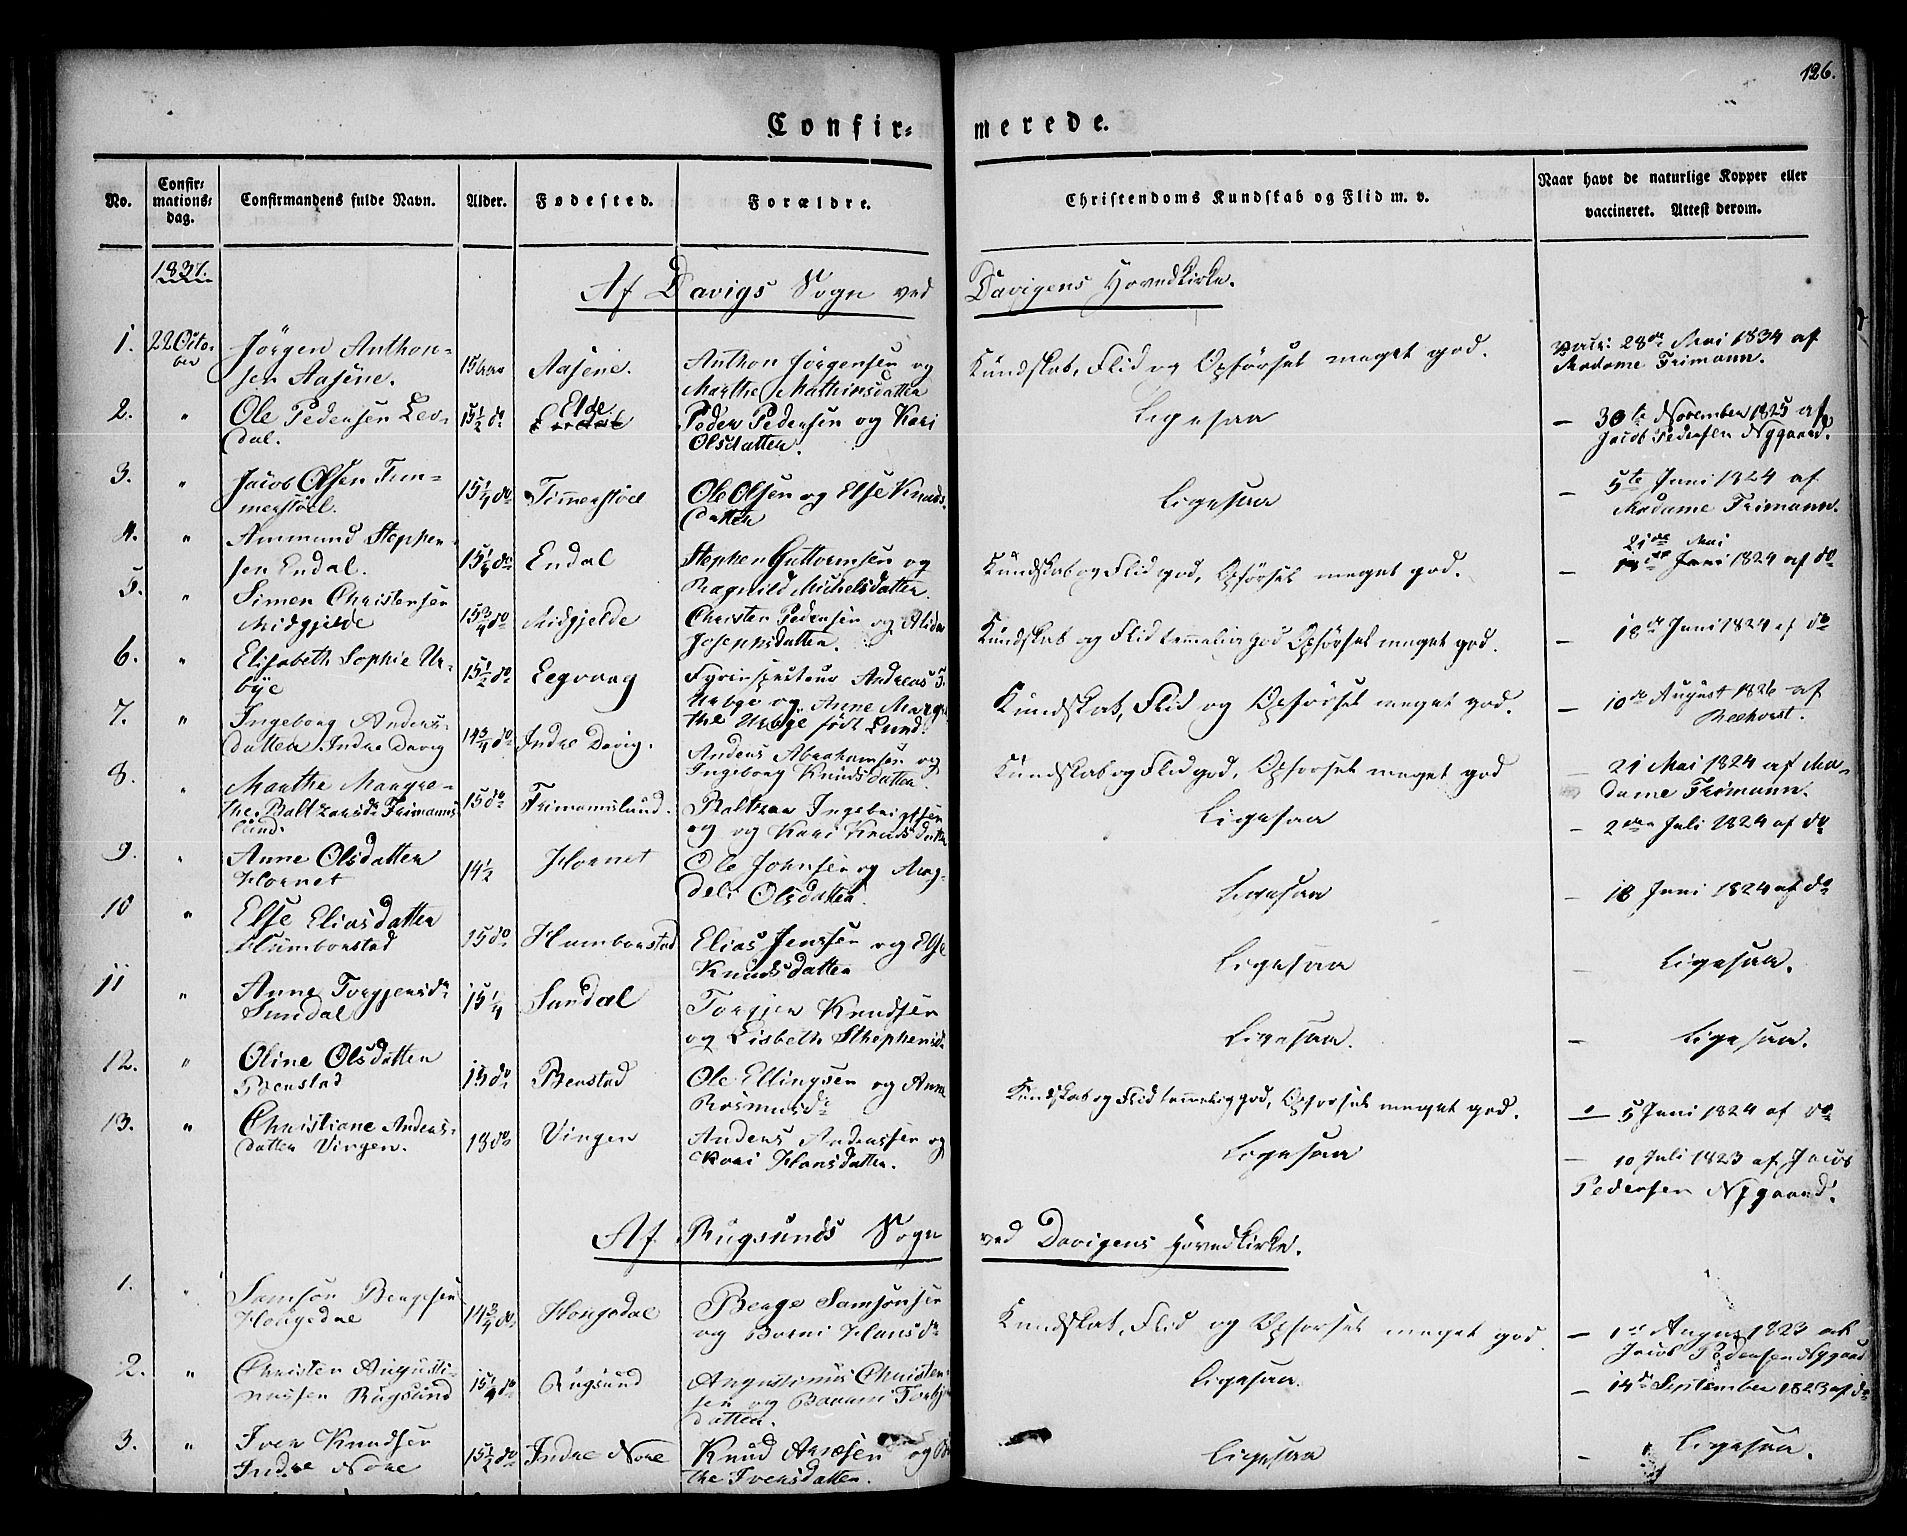 126.
Confir=
merede.
No.
Confir=
mations=
dag.
Confirmandens fulde Navn.
Alder.
Fødested.
Forældre.
Christendoms Kundskab og Flid m. v.
Naar havt de naturlige Kopper eller
vaccineret. Attest derom.
1837.
Af Davigs Sogn ved
Davigens Hovedkirke.
1.
22 Octo-
ber
Jørgen Anthon-
sen Aasene.
15 Aar
Aasene.
Anthon Jørgensen og
Marthe Mathiasdatter
Kundskab, Flid og Opførsel meget god.
28de Mai 1834 af
Madame Frimann.
2.
"
Ole Pedersen Lev-
dal.
15 1/2 do
Elde.
Peder Pedersen og Kari
Olsdatter.
Ligesaa
— 30te November 1825 af
Jacob Pedersen Nygaard.
3.
"
Jacob Olsen Tem-
merstöel.
15 1/4 do
Timmerstöel
Ole Olsen og Else Knuds
datter
Ligesaa
— 5te Juni 1824 af
Madame Frimann.
4.
"
Ammund Stephen-
sen Endal.
15 1/4 do
Endal
Stephen Guttormsen og
Ragnild Michelsdatter.
Kundskab og Flid god, Opførsel meget god.
21de Mai
— Juni 1824 af do
5.
"
Simen Christensen
Midgjelde
15 3/4 do
Midgjelde
Christen Pedersen og Alida
Josephsdatter.
Kundskab og Flid temmelig god Opførsel meget god.
— 18de Juni 1824 af do
6.
"
Elisabeth Sophie Ur-
bye
15 1/2 do
Eegvaag
Fyrinspecteur Andreas S.
Urbye og Anne Margre
the Urbye født Lund.
Kundskab, Flid og Opførsel meget god.
— 10de August 1826 af
7.
"
Ingeborg Anders-
datter Indre Davig
14 3/4 do
Indre Davig.
Anders Abrahamsen og
Ingeborg Knudsdatter.
Kundskab og Flid god, Opførsel meget god
— 21 Mai 1824 af Ma-
dame Frimann.
8.
"
Marthe Margre-
the Baltzarsdr Frimanns
lund.
15 do
Frimannslund.
Baltzar Ingebrigtsen
og og Kari Knudsdatter
Ligesaa
— 2den Juli 1824 af do
9.
"
Anne Olsdatter
Hornet
14 1/2
Hornet
Ole Johnsen og Mag-
deli Olsdatter.
Ligesaa
— 18 Juni 1824 af do
10
"
Else Eliasdatter
Humborstad
15 do
Humborstad
Elias Jenssen og Else
Knudsdatter
Ligesaa
— Ligesaa.
11
"
Anne Torgjersdr
Sundal
15 1/4
Sundal
Torgjer Knudsen
og Lisbeth Sthephensdr
Ligesaa.
— Ligesaa.
12.
"
Oline Olsdatter
Benstad
15 do
Benstad
Ole Ellingsen og Anne
Rasmusdr
Kundskab og Flid temmelig god, Opførsel meget god.
— 5 Juni 1824 af do
13.
"
Christiane Anders-
datter Vingen.
15 do
Vingen
Anders Andersen og
Kari Hansdatter.
Ligesaa
— 10 Juli 1823 af Jacob
Pedersen Nygaard.
Af Rugsunds Sogn
ved Davigens Hovedkirke.
1.
"
Samson Bergesen
Hougedal
14 3/4 do
Hougedal
Berge Samsonsen
og Barni Hansdr
Kundskab, Flid og Opførsel meget god
— 1ste August 1823 af
Jacob Pedersen Nygaard
2.
"
Christen Augusti-
nussen Rugsund
15 1/4 do
Rugsund
Augustinus Christen-
sen og
datter.
Ligesaa.
— 14de September 1823 af do
3.
"
Iver Knudsen
Indre Nore
15 1/2 do
Indre Nore
Knud Arnesen og
the Iversdatter.
Ligesaa
— Ligesaa.